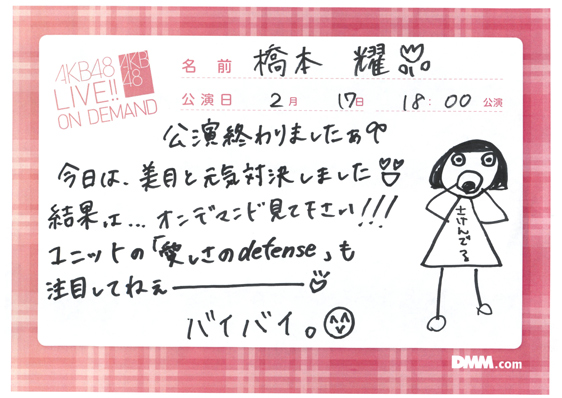 AKB48
LIVE!!
ON DEMAND
AKB
48
名前 橋本 耀
公演日 2月 17日 18:00 公演
公演終わりましたぁ
今日は、美月と元気対決しました
結果は…オンデマンド見て下さい!!!
ユニットの「愛しさのdefense」も
注目してねぇー
バイバイ。
さけんでる
DMM.com